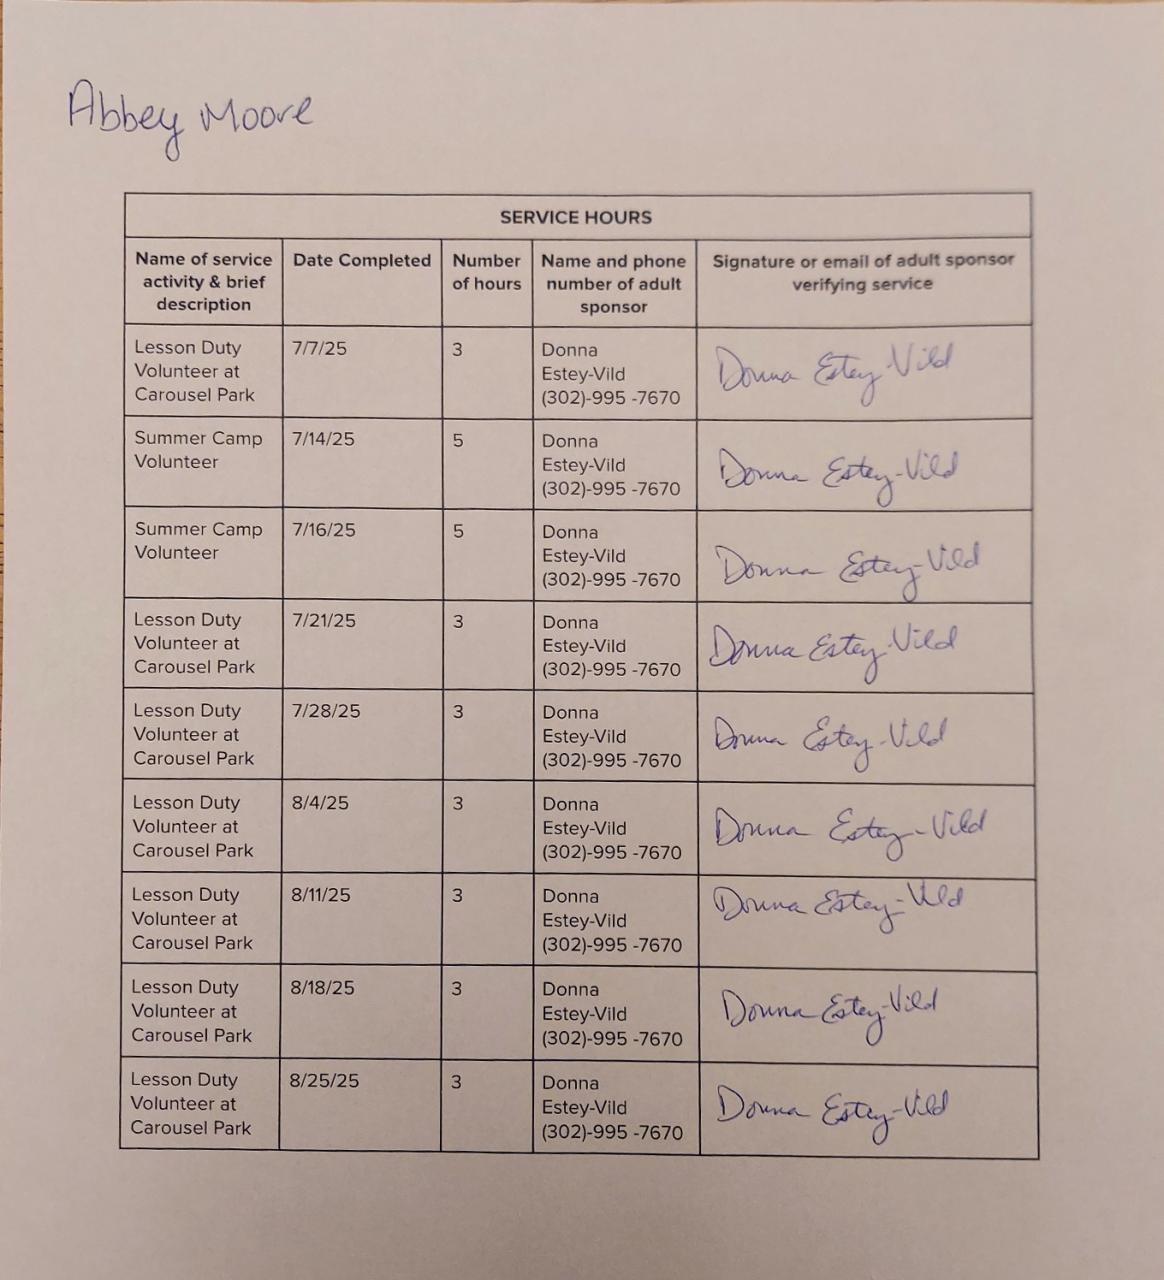 Abbey Moore
SERVICE HOURS
Name of service activity & brief description
Date Completed
Number of hours
Name and phone number of adult sponsor
Signature or email of adult sponsor verifying service
Lesson Duty
Volunteer at
Carousel Park
7/7/25
3
Donna
Estey-Vild
(302)-995 -7670
Donna Estey-Vild
Summer Camp
Volunteer
7/14/25
5
Donna
Estey-Vild
(302)-995 -7670
Donna Estey-Vild
Summer Camp
Volunteer
7/16/25
5
Donna
Estey-Vild
(302)-995 -7670
Donna Estey-Vild
Lesson Duty
Volunteer at
Carousel Park
7/21/25
3
Donna
Estey-Vild
(302)-995 -7670
Donna Estey-Vild
Lesson Duty
Volunteer at
Carousel Park
7/28/25
3
Donna
Estey-Vild
(302)-995 -7670
Donna Estey-Vild
Lesson Duty
Volunteer at
Carousel Park
8/4/25
3
Donna
Estey-Vild
(302)-995 -7670
Donna Estey-Vild
Lesson Duty
Volunteer at
Carousel Park
8/11/25
3
Donna
Estey-Vild
(302)-995 -7670
Donna Estey-Vild
Lesson Duty
Volunteer at
Carousel Park
8/18/25
3
Donna
Estey-Vild
(302)-995 -7670
Donna Estey-Vild
Lesson Duty
Volunteer at
Carousel Park
8/25/25
3
Donna
Estey-Vild
(302)-995 -7670
Donna Estey-Vild